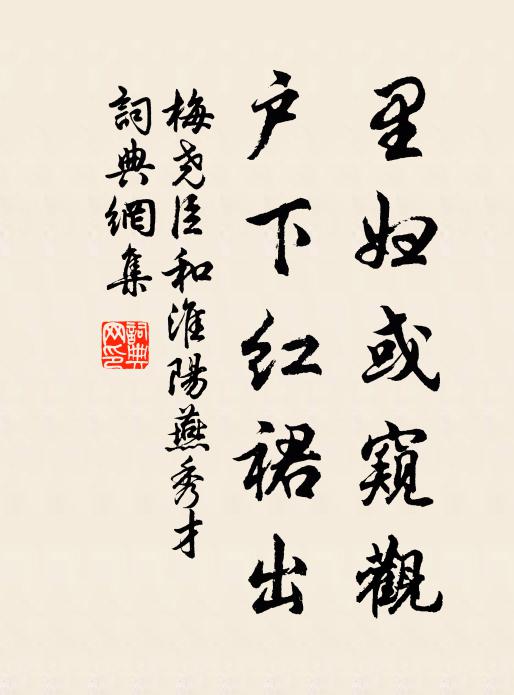 里妇或窥觀
户下红裙出
梅尧臣和淮陽燕秀才
詞典網集
詞典网印